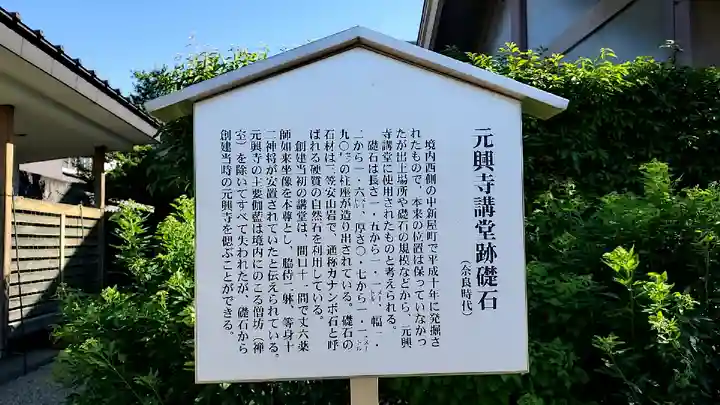 元興寺講堂跡礎石
（奈良時代）
境内西側の中新屋町で平成十年に発掘さ
れたもので、本来の位置は保っていなかっ
たが出土場所や礎石の規模などから、元興
寺講堂に使用されたものと考えられる。
礎石は長さ一・五から一・
から一・六 、厚さ〇・七から一・
九〇 の柱座が造り出されている。礎石の
石材は三笠安山岩で、通称カナンボ石と呼
ばれる硬質の自然石を利用している。
創建当初の講堂は、間口十一間で丈六薬
師如来坐像を本尊とし、脇侍二躰、等身十
二神将が安置されていたと伝えられている。
元興寺の主要伽藍は境内にのこる僧坊（禅
室）を除いてすべて失われたが、礎石から
創建当時の元興寺を偲ぶことができる。